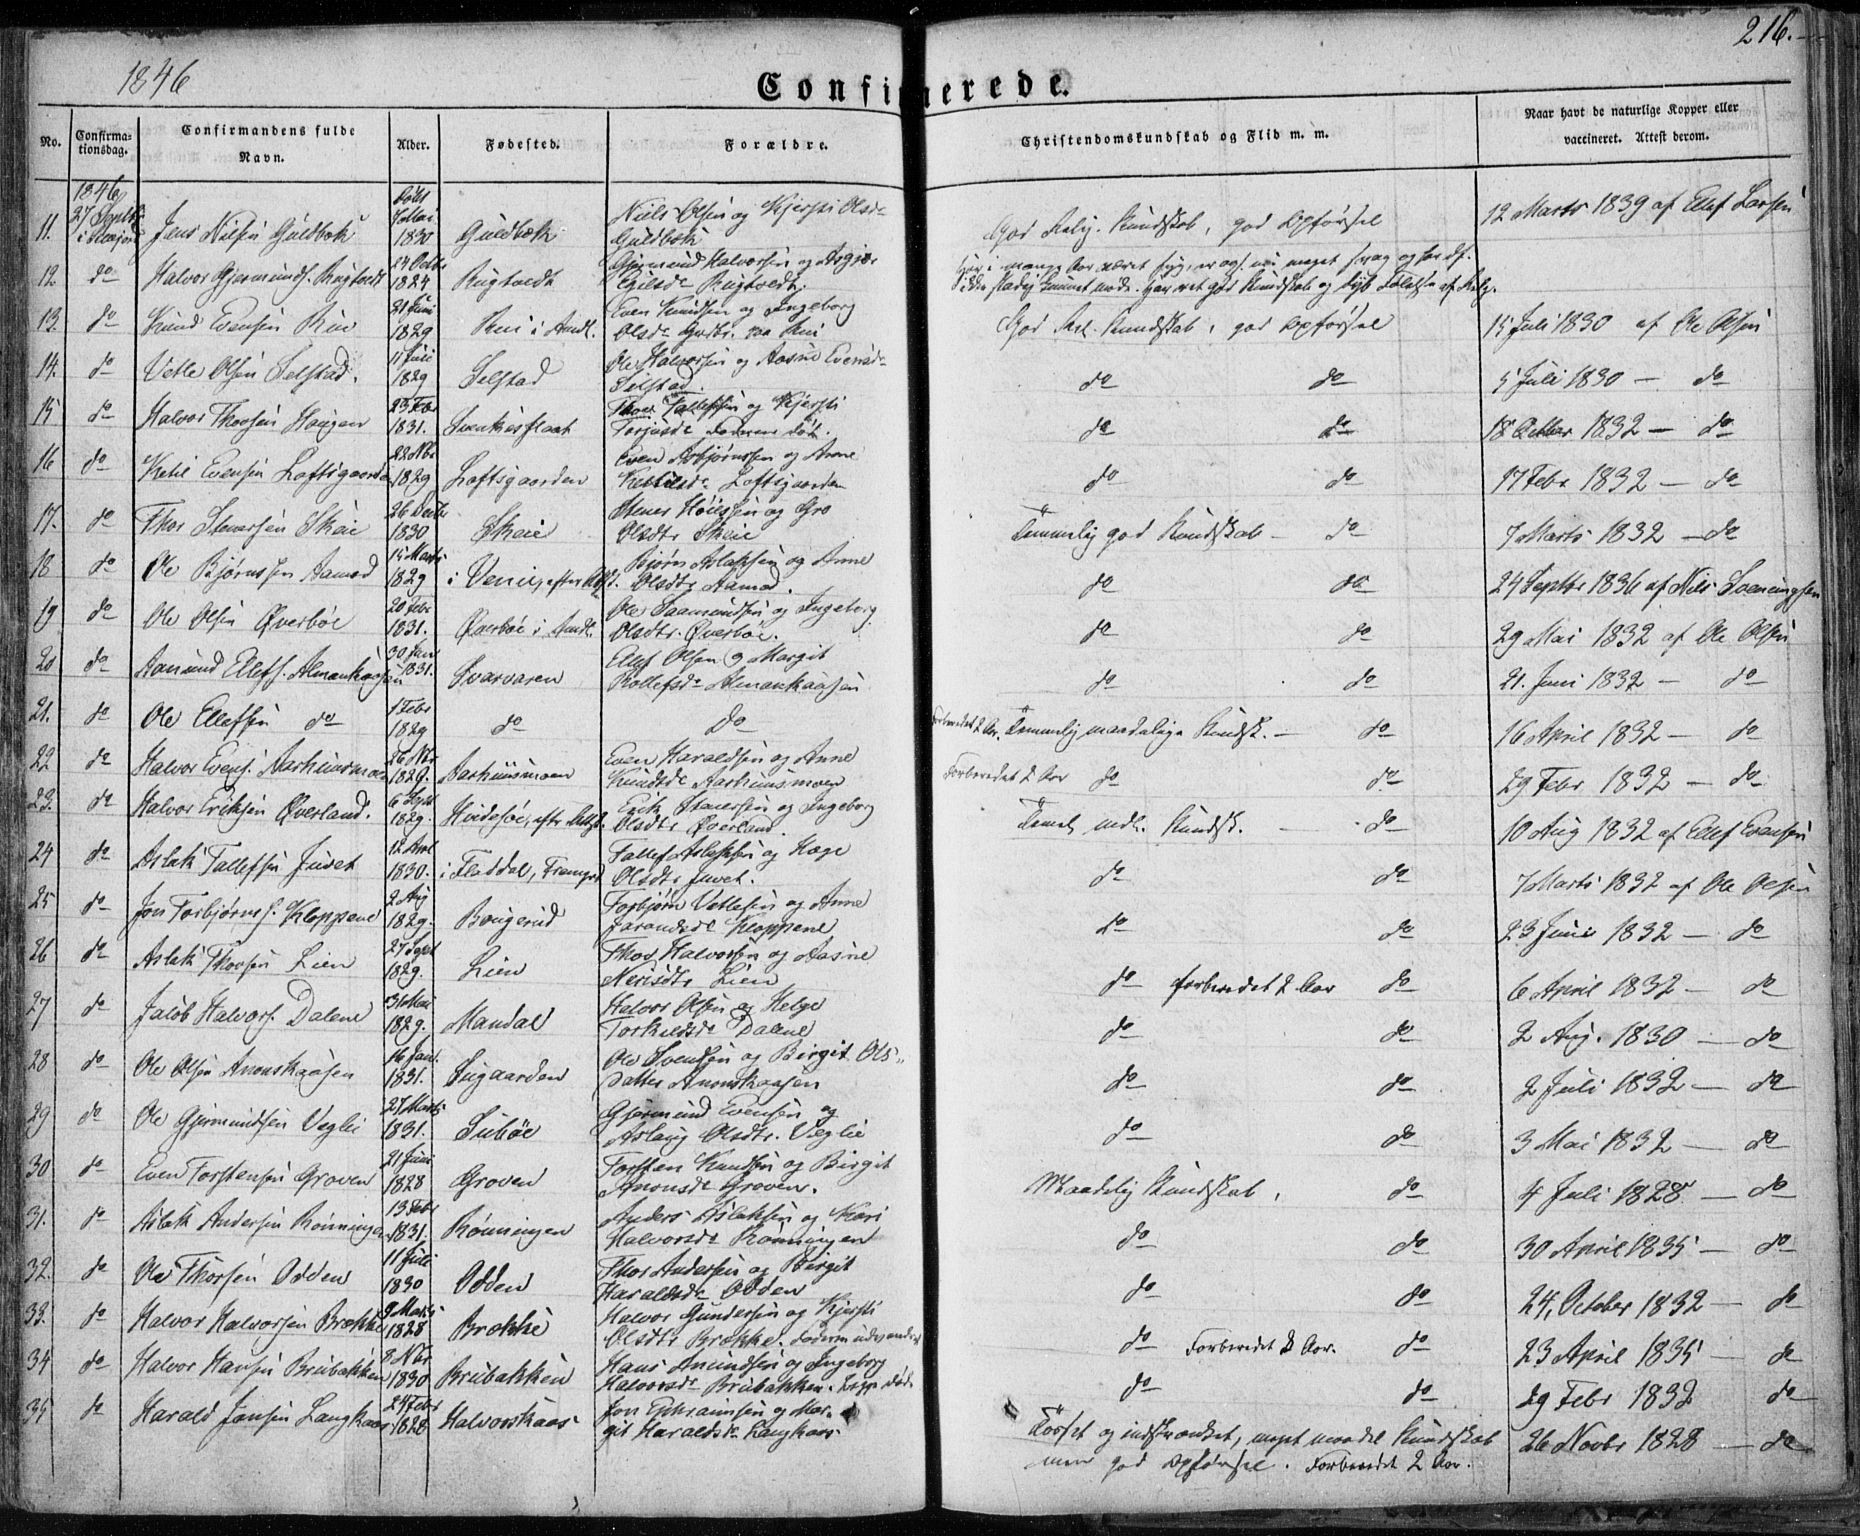 1846
216.
Confirmerede.
No. Confirmationsdag. Confirmandens fulde Navn. Alder. Fødested. Forældre. Christendomskundskab og Flid m. m. Naar havt de naturlige Kopper eller vaccineret. Attest derom.
1846 27 Septbr født
11. Jens Nilsen Guldbæk 7 Mai 1830 Guldbæk Niels Olsen og Kjersti Olsdr Guldbæk God Relig. Kundskab, god Opførsel 12 Marts 1839 af Ellef Larsen
12. do Halvor Gjermunds. Rugtvedt 24 Octbr 1824 Rugtvedt Gjermund Halvorsen og Asgjær Egilsdr Rugtvedt. Har i mange Aar været syg, er ogs. nu meget svag og har df. ikke stadig kunnet møde. Har ret god Kundskab og dyb Følelse af Relig.
13. do Knud Evensen Rui 21 Juni 1829 Rui i Amdl. Even Knudsen og Ingeborg Olsdr Gvstr. paa Rui God Rel. Kundskab, god Opførsel 15 Juli 1830 af Ole Olsen
14. do Vetle Olsen Selstad. 11 Juli 1829 Selstad Ole Halvorsen og Aasne Evensdr Selstad. do do 5 Juli 1830 — do
15 do Halvor Thorsen Haugen 23 Febr 1831. Svenkesflaat Thor Tallefsen og Kjersti Torjusdr Faderen død. do do 18 Octbr 1832 — do
16 do Ketil Evensen Loftsgaarden 22 Nbr 1829 Loftsgaarden Even Asbjørnsen og Anne Ketilsdr Loftsgaarden do do 17 Febr 1832 — do
17. do Thor Stenersen Skeie 26 Decbr 1830 Skeie Stener Høljesen og Gro Olsdtr Skeie Temmelig god Kundskab — do 7 Marts 1832 — do
18 do Ole Bjørnsen Aamod 15 Marts 1829 i Venie, efter Attst. Bjørn Aslaksen og Anne Olsdtr Aamod. do do 24 Septbr 1836 af Nils Sveningsen
19 do Ole Olsen Øverbøe 20 Febr 1831. Øverbøe i Amdl. Ole Saamundsen og Ingeborg Olsdtr. Øverbøe. do do 29 Mai 1832 af Ole Olsen
20 do Aamund Ellefs. Almankaasen 30 Jan 1831. Svarvaren Ellef Olsen og Margit Rollefsdr Almankaasen do do 21. Juni 1832 — do
21. do Ole Ellefsen do 1 Febr 1829 do do Forberedet 2 Aar. Temmelig maadelige Kundsk. — do 16 April 1832 — do
22 do Halvor Evens. Aarhuusmoen 26 Nbr 1829. Aarhuusmoen Even Haraldsen og Anne Knudsdr Aarhuusmoen Forberedet 2 Aar do do 29 Febr 1832 — do
23. do Halvor Eriksen Øverland. 6 Sept 1829. Hvidesøe, efter Attst. Erik Stenersen og Ingeborg Olsdtr Øverland. Temel. mdl. Kundsk. — do 10 Aug 1832 af Ellef Evensen
24 do Aslak Tallefsen Juvet 12 Aprl 1830. i Fladdal, Tallef Aslaksen og Hæge Olsdtr Juvet. do do 7 Marts 1832 af Ole Olsen
25 do Jon Torbjørns. Kloppene 2 Aug 1829. Bougerud Torbjørn Vetlesen og Anne Jarandsdr Kloppene do do 23 Juni 1832 — do
26 do Aslak Thorsen Lien 27 Sept 1829. Lien Thor Halvorsen og Aasne Nerisdtr Lien do forberedet 2 Aar do 6 April 1832 — do
27 do Jacob Halvors. Dalene 31 Mai 1829. Mandal Halvor Olsen og Helge Torkildsdr Dalene do do 2 Aug. 1830 — do
28 do Ole Olsen Anonskaasen 16 Jan. 1831. Sugaarden Ole Svendsen og Birgit Ols-datter Anonskaasen do do 2 Juli 1832 — do
29 do Ole Gjermundsen Veglei 27 Marts 1831. Subøe Gjermund Evensen og Aslaug Olsdtr. Veglei do do 3 Mai 1832 — do
30 do Even Torstensen Groven 21 Juni 1828 Groven Torsten Knudsen og Birgit Anonsdr Groven. Maadelig Kundskab, do 4 Juli 1828 — do
31. do Aslak Andersen Rønningen 13 Febr 1831. Rønningen Anders Aslaksen og Kari Halvorsdr Rønningen do do 30 April 1835 — do
32. do Ole Thorsen Odden 11 Juli 1830 Odden Thor Andersen og Birgit Haraldsdr Odden do do 24, October 1832 — do
33. do Halvor Halvorsen Brække 9 Marts 1828 Brække Halvor Gundersen og Kjersti Olsdtr Brække. Faderen udvandret do Forberedet 2 Aar. do 23 April 1835 — do
34 do Halvor Hansen Brubakken 8 Nbr. 1830 Brubakken Hans Amundsen og Ingeborg Halvorsdr Brubakken. do do 29 Febr 1832 do
35 do Harald Jonsen Langkaas 24 Febr 1828 Halvorskaas Jon Ephraimsen og Margit Haraldsdr Langkaas Tosset og indskrænket, meget maadel Kundskab men god Opførsel. Forberedet 2 Aar. 26 Novbr 1828 — do